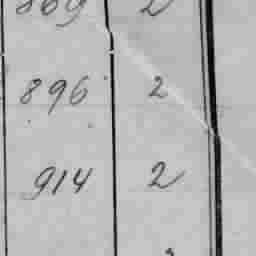 869 2
896 2
914 2